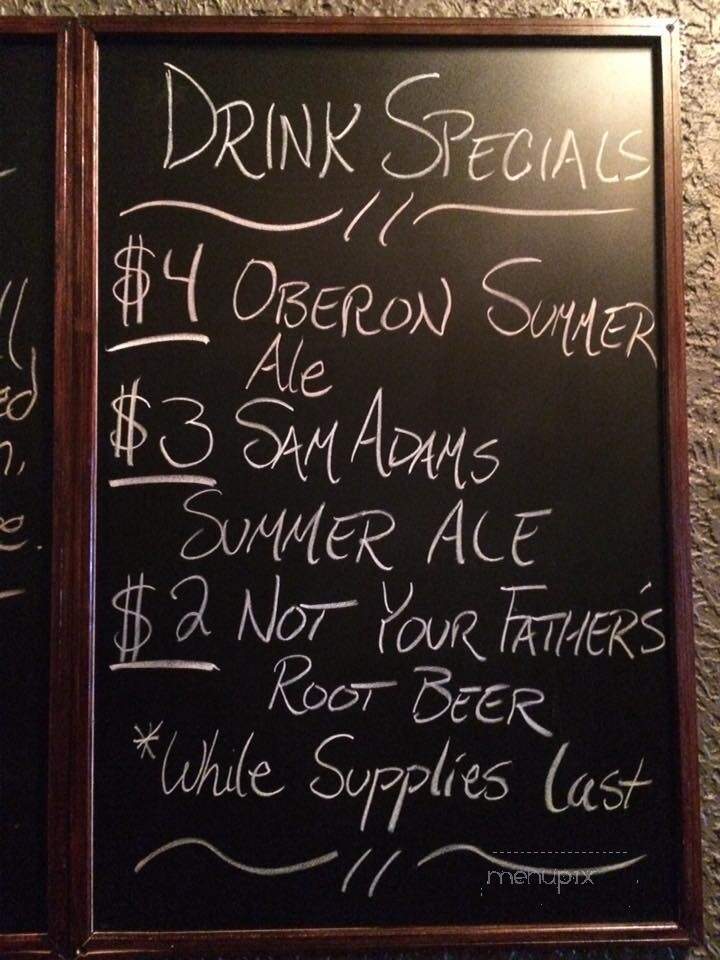 DRINK SPECIALS
$4 OBERON SUMMER
Ale
$3 SAM ADAMS
SUMMER ALE
$2 NOT YOUR FATHER'S
ROOT BEER
*While Supplies Last
menupix